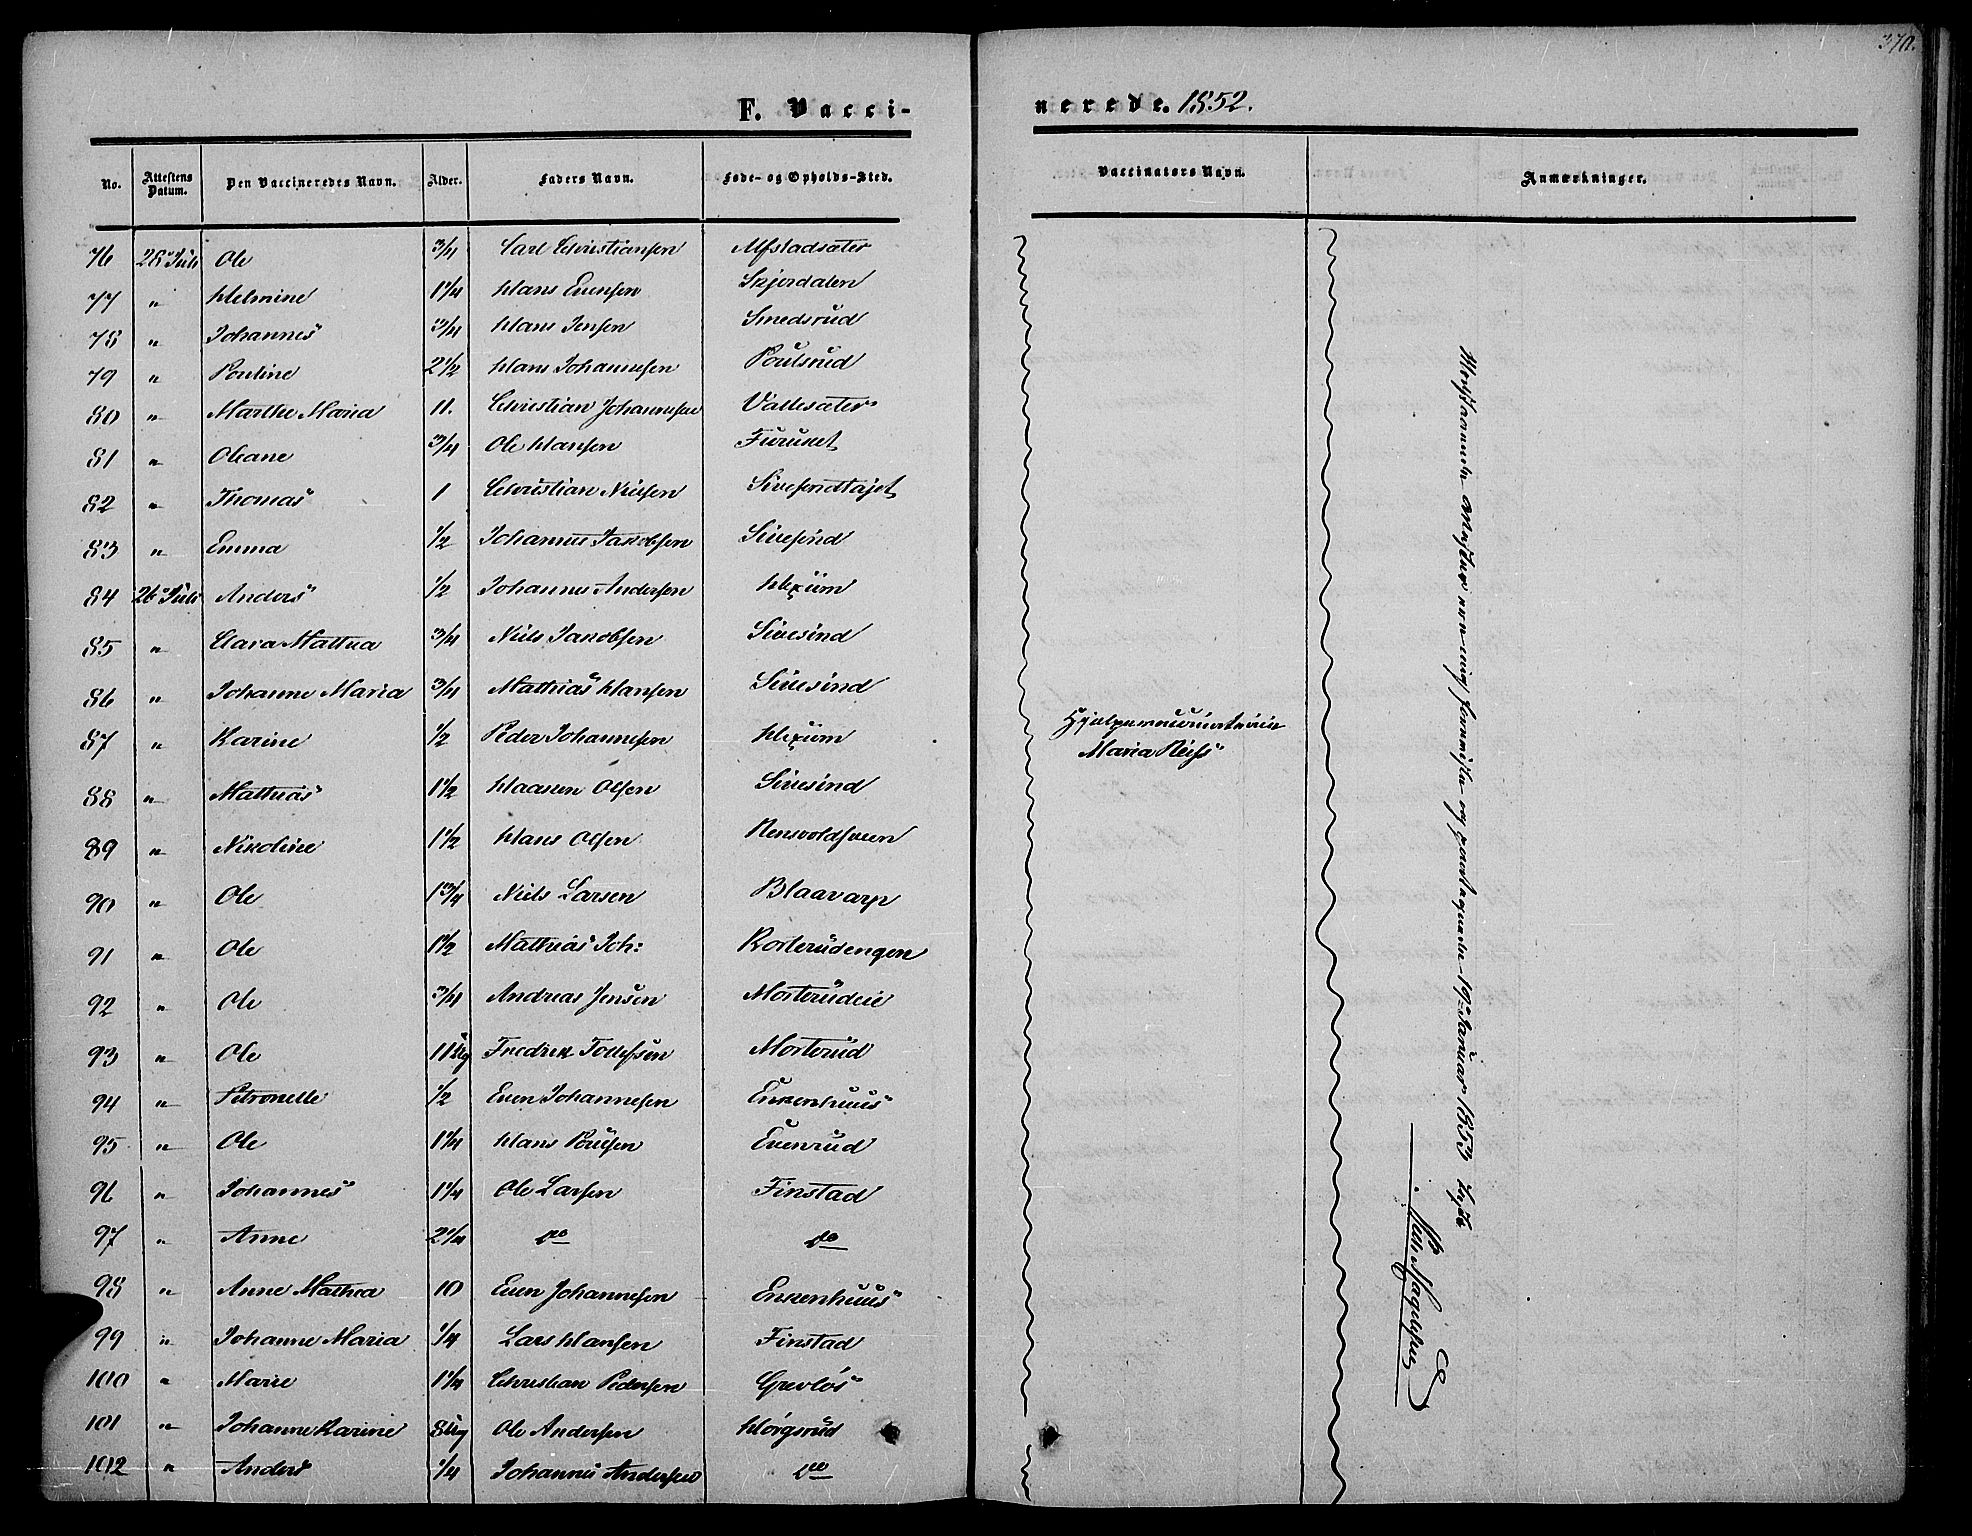 370.
F. Vacci-
nerede. 1852.
No. Attestens Datum. Den Vaccineredes Navn. Alder. Faders Navn. Føde- og Opholds-Sted.
Vaccinatørs Navn. Anmærkninger.
76 Ole 3/4 Carl Christiansen Alfstadsæter
77 " Helmine 1 1/4 Hans Evensen Skjerdalen
78 " Johannes 3/4 Hans Jensen Smedsrud
79 " Pouline 2 1/2 Hans Johannesen Poulsrud
80 " Marthe Maria 11. Christian Johannesen Vallesæter
81 " Oleane 3/4 Ole Hansen Furuset
82 " Thomas 1 Christian Nielsen
83 " Emma 1/2 Johannes Jakobsen Sivesind
84 26 Juli Anders 1/2 Johannes Andersen Hexum
85 " Clara Mathea 3/4 Niels Jakobsen Sivesind
86 " Johanne Maria 3/4 Mathias Hansen Sivesind
87 " Karine 1/2 Peder Johannesen Hexum
88 " Mathias 1 1/2 Haagen Olsen Sivesind
89 " Nikoline 1 1/2 Hans Olsen
90 " Ole 1 3/4 Niels Larsen Blaavarp
91 " Ole 1 1/2 Mathias Joh: Korterudengen
92 " Ole 3/4 Andreas Jensen Morterudeie
93 " Ole 11 Ug Fredrik Tollefsen Morterud
94 " Petronelle 1/2 Even Johannesen Enkenhuus
95 " Ole 1 1/4 Hans Poulsen Evenrud
96 " Johannes 1 1/4 Ole Larsen Finstad
97 " Anne 2 1/4 do do
98 " Anne Mathea 10 Even Johannesen Enkenhuus
99 " Johanne Maria 1/4 Lars Hansen Finstad
100 " Marie 1 1/4 Christian Pedersen Grevløs
101 " Johanne Karine 8 Ug Ole Andersen Hørgsrud
102 " Anders 1/4 Johannes Andersen do
Hjelpevaccinatricen
Maria Reiss
og 19de Januar 1853